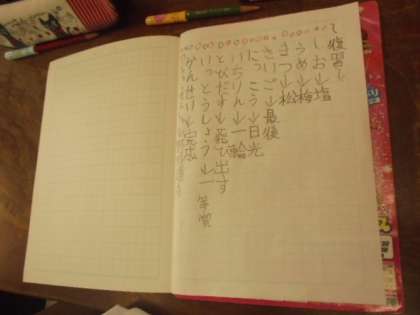 復習
しお→塩
うめ→梅
まつ→松
さいご→最後
にっこう→日光
いちりん→一輪
とびだす→飛び出す
いっとうしょう→一等賞
かんせい→完成